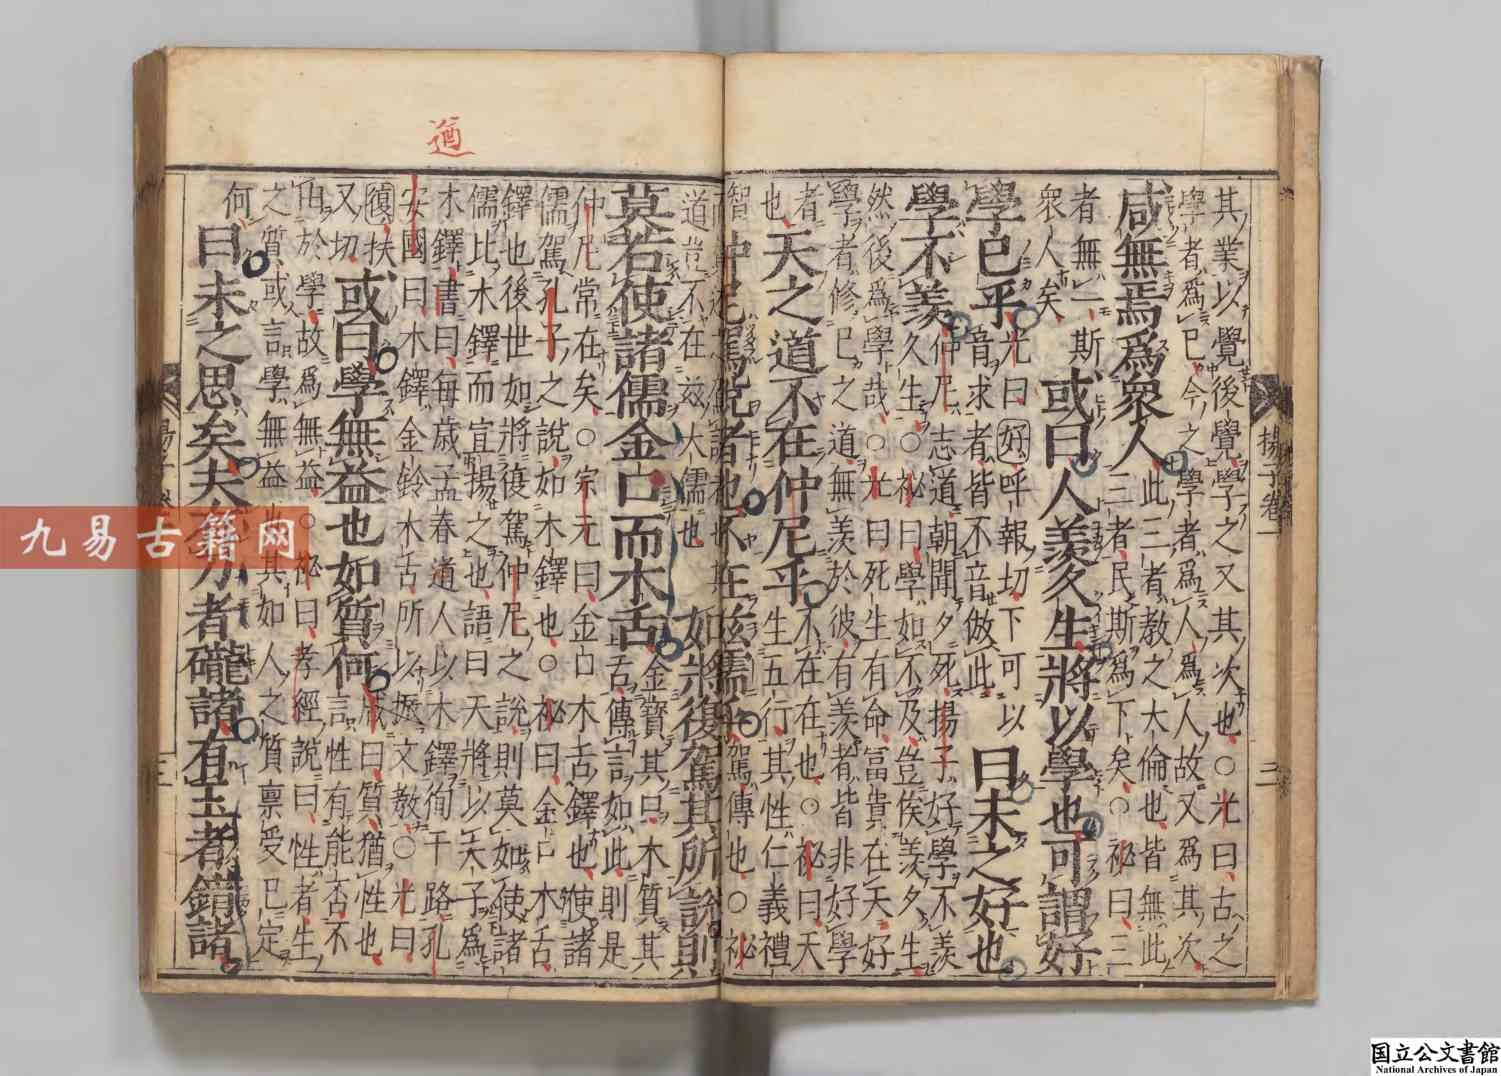 其業以覺後覺學之又其次也○光曰古之
學者爲己今之學者爲人爲人故又爲其次
咸無焉爲衆人此三者教之大倫也皆無此
者無一斯爲下矣○祕曰三
衆人矣
三者民斯爲下矣
或曰人羨久生將以學也可謂好
學已乎光曰好呼報切下可以
音求者皆不音倣此曰未之好也
學不羨仲尼志道朝聞夕死揚子好學不羨
久生○祕曰學如不及豈俟羨夕生
然後爲學哉○光曰死生有命富貴在天好
學者修己之道無羨於彼有羨者皆非好學
者也
天之道不在仲尼乎不在在也○祕曰天
生五行其性仁義禮
智仲尼駕說者也不在茲儒乎駕傳也○祕
道豈不在茲大儒也
如將復駕其所說則
莫若使諸儒金口而木舌金寶其口木質其
舌傳言如此則是
仲尼常在矣○宗元曰金口木舌鐸也使諸
儒駕孔子之說如木鐸也○祕曰金口木舌
鐸也後世如將復駕仲尼之說則莫如使諸
儒比木鐸而宣揚之也語曰天將以夫子爲
木鐸書曰每歲孟春遒人以木鐸徇于路孔
安國曰木鐸金鈴木舌所以振文教○光曰
復扶
又切
或曰學無益也如質何咸曰質猶性也
言性有能否不
由於學故爲無益○祕曰孝經說曰性者生
之質或言學無益也其如人之質稟受已定
何
曰未之思矣夫有刀者礲諸有玉者錯諸
遒
揚子卷一
三
九易古籍网
国立公文書館
National Archives of Japan